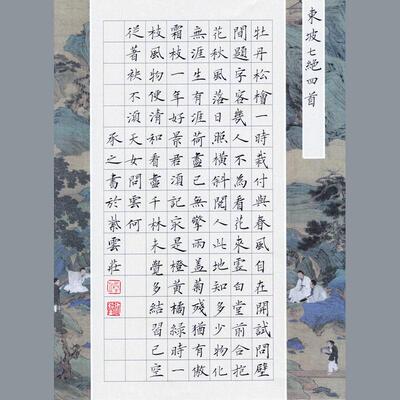 東坡七絕四首
牡丹松檜一時栽付與春風自在開試問壁
間題字客幾人不為看花來虛白堂前合抱
花秋風落日照橫斜閱人此地知多少物化
無涯生有涯荷盡已無擎雨蓋菊殘猶有傲
霜枝一年好景君須記最是橙黃橘綠時一
枝風物便清和看盡千林未覺多結習已空
從著袂不須天女問雲何
承之書於紫雲莊